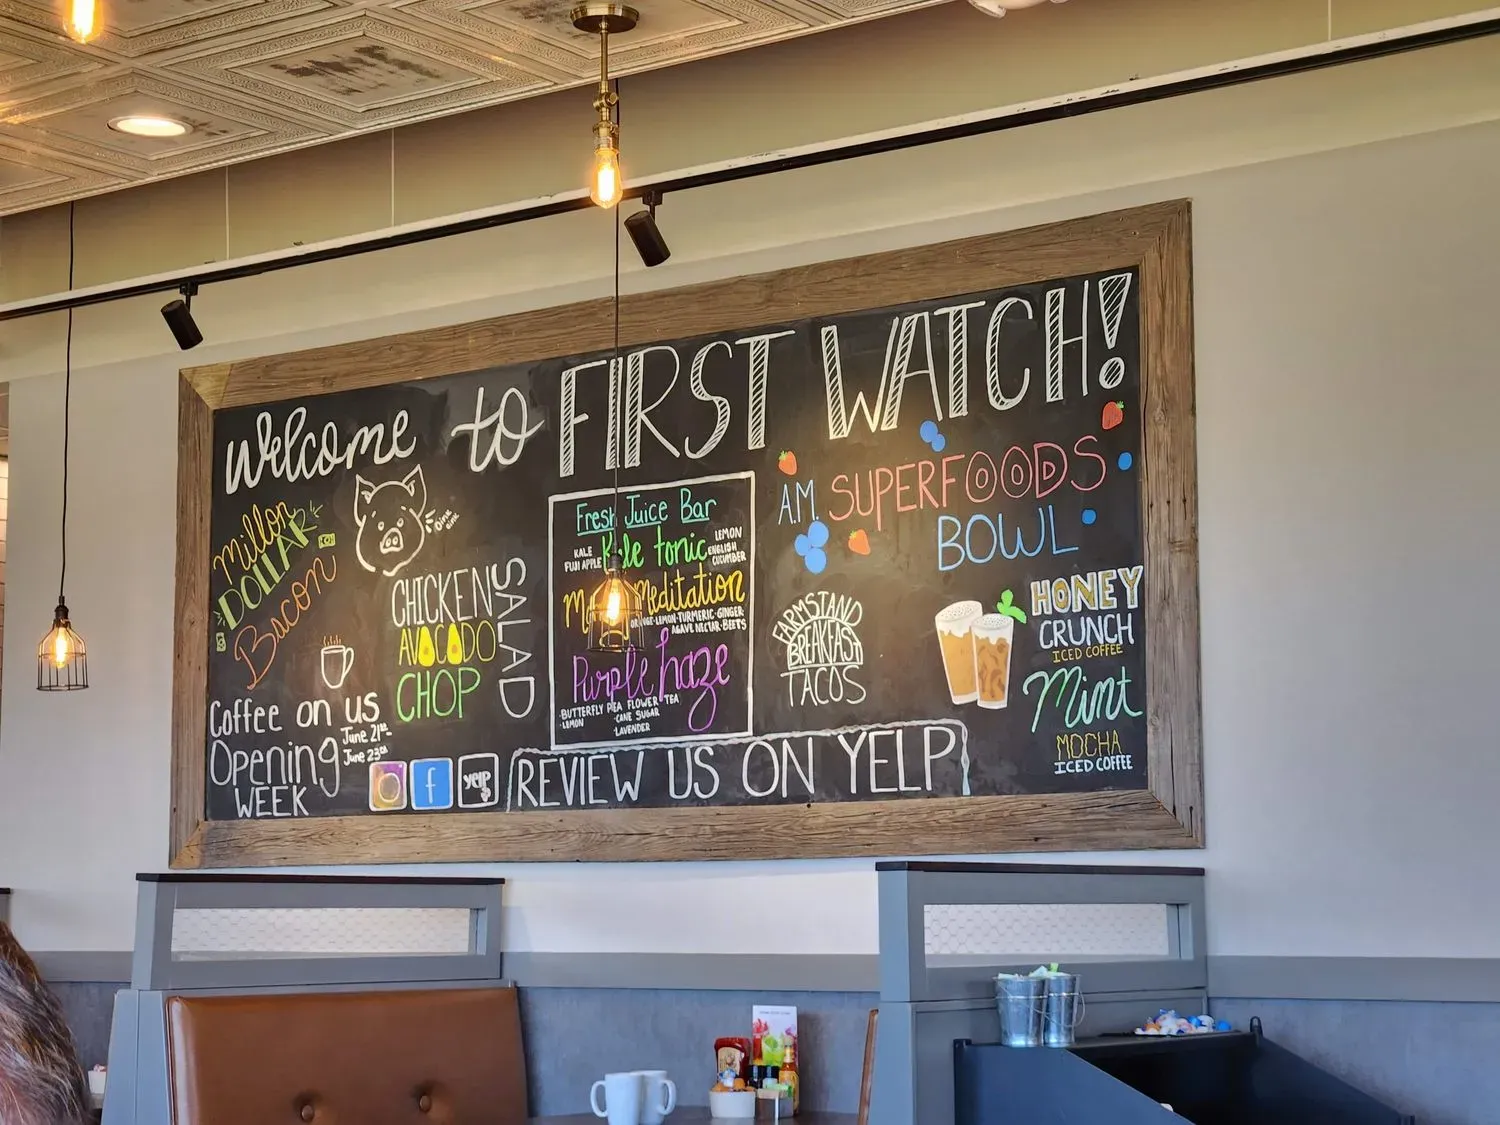 Welcome to FIRST WATCH!
Millon
DOLLAR
Bacon
oink
oink
CHICKEN
AVOCADO
CHOP
SALAD
Coffee on us
Opening
WEEK
June 21st-
June 23rd
yelp
Fresh Juice Bar
Kale tonic
KALE
FUJI APPLE
LEMON
ENGLISH
CUCUMBER
Meditation
LEMON·TURMERIC·GINGER
AGAVE NECTAR·BEETS
Purple haze
·BUTTERFLY PEA FLOWER TEA
·LEMON
·CANE SUGAR
·LAVENDER
REVIEW US ON YELP
A.M. SUPERFOODS
BOWL
FARMSTAND
BREAKFAST
TACOS
HONEY
CRUNCH
ICED COFFEE
Mint
MOCHA
ICED COFFEE